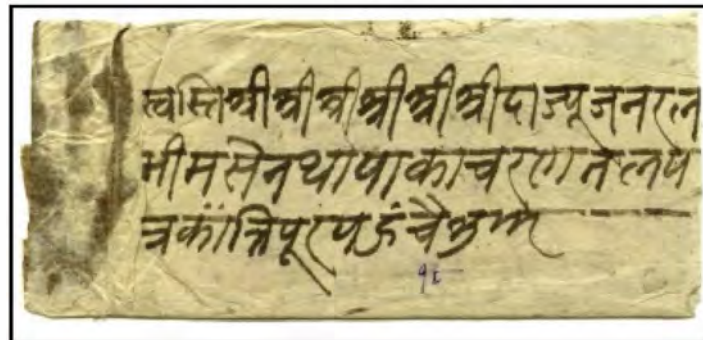 स्वस्ति श्री श्री श्री श्री श्री श्री दाज्यू जनरल
भीमसेन थापाका चरण तल प
त्र कांत्तिपूर पऊंचै शुभम्
१८